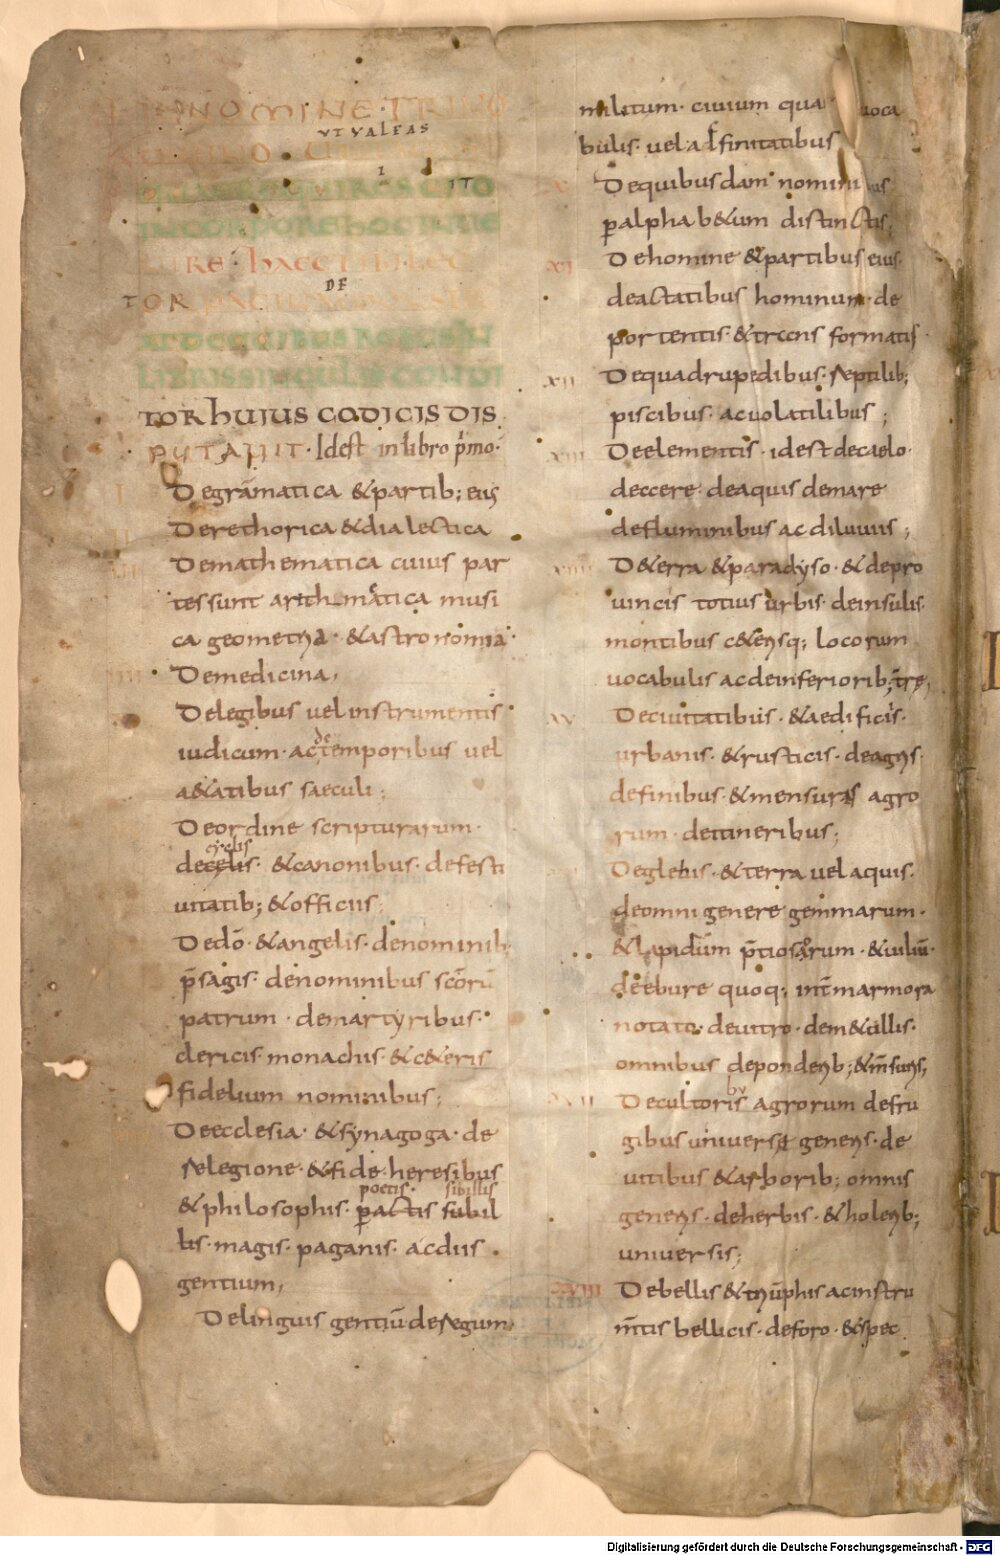 IN NOMINE TRINO
UT VALEAS
QUAE REQUIRIS CITO
IN CORPORE HOC INVE
NIRE HAEC TIBI LEC
DE
TOR
AT DE QUIBUS REBUS IN
LIBRIS SINGULIS CONDI
TOR HUIUS CODICIS DIS
PUTAVIT · Idest in libro pͥmo ·
I Degrāmatica & partib; eius
II De rethorica & dialectica
III De mathematica cuius par
tes sunt arithmatica musi
ca geometria · & astronomia ·
IIII De medicina ,
De legibus uel instrumentis
de
iudicum · ac temporibus uel
a&atibus saeculi ;
De ordine scripturarum ·
cyclis
de celis · & canonibus · de festi
uitatib; & officiis ;
De dō · & angelis · de nominib;
p̄sagis · de nominibus scōrū
patrum · de martyribus ·
clericis · monachis · & c&eris
fidelium nominibus ;
De ecclesia · & synagoga · de
relegione · & fide · heresibus
poetis · sibillis
& philosophis · ꝑactis subil
lis · magis · paganis · ac diis
gentium ;
De linguis gentiū de regum
militum · ciuium qua uoca
bulis · uel affinitatibus
X De quibusdam nominibus
ꝑ alphab&um distinctis ;
XI De homine & partibus eius ·
de actatibus hominum · de
portentis · & trans formatis ·
XII De quadrupedibus · reptilib;
piscibus · ac uolatilibus ;
XIII De elementis · id est de caelo ·
de aere · de aquis de mare
de fluminibus ac diluuiis ;
XIIII De terra & paradyso · & de pro
uinciis totius urbis · de insulis ·
montibus c&erisq; locorum
uocabulis ac de inferiorib; tr̄e ;
XV De ciuitatibus · & aedificiis ·
urbanis · & rusticis · de agris ·
de finibus · & mensuras agro
rum · de itineribus ;
De glebis · & terra uel aquis ·
de omni genere gemmarum ·
& lapidum p̄tiosarum · & uiliū ·
de ebure quoq; int̄ marmora
notato · de uitro · de m&allis ·
omnibus de ponderib; & m̄suris ;
bu
XVII De cultoris agrorum de fru
gibus uniuersi generis · de
uitibus & arborib; omnis
generis · de herbis · & holerib;
uniuersis ;
XVIII De bellis & triūphis ac instru
m̄tis bellicis · de foro · & spec
Digitalisierung gefördert durch die Deutsche Forschungsgemeinschaft - DFG